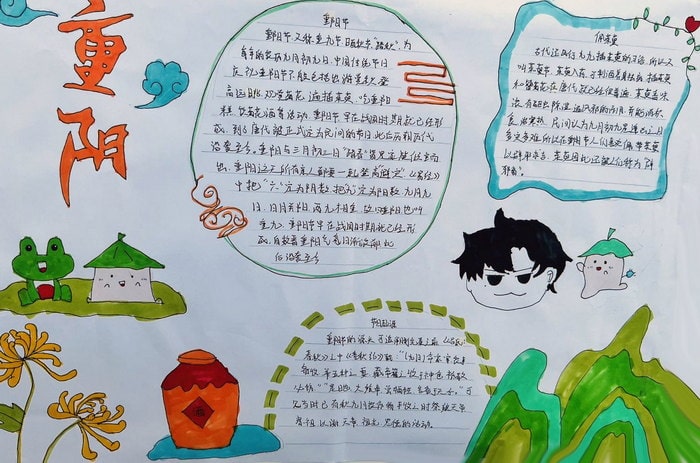 重阳
重阳节
重阳节又称重九节日晒秋节“踏秋”,为
每年的农历九月初九日,中国传统节日
庆祝重阳节一般包括出游赏秋登
高远眺、观赏菊花、遍插茱萸、吃重阳
糕、饮菊花酒等活动。重阳节早在战国时期就已经形
成,到了唐代被正式定为民间的节日,此后历朝历代
沿袭至今。重阳与三月初三日“踏春”皆是家族倾室而
出,重阳这天所有亲人都要一起登高“避灾”《易经》
中把“六”定为阴数,把“九”定为阳数,九月九
日,日月并阳,两九相重,故曰重阳,也叫
重九。重阳节早在战国时期就已经形
成,自
沿袭至今
佩茱萸
古代还风行九九插茱萸的习俗,所以又
叫茱萸节。茱萸入药,可制酒养身祛病。插茱萸
和簪菊花在唐代就已经很普遍。茱萸香味
浓,有驱虫除湿、逐风邪的作用,并能消积
食,治寒热。民间认为九月初九是逢凶之日
多灾多难,所以在重阳节人们喜欢佩带茱萸
以辟邪求吉。茱萸因此还被人们称为“辟
邪翁”。
节日起源
重阳的源头,可追溯到先秦之前。《吕氏
春秋》之中《季秋纪》载:“(九月)命家宰,农事
备收,举五种之要。藏帝籍之收于神仓,祗敬
必饬。”“是日也,大飨帝,尝牺牲,告备于天子。”可
见当时已有秋九月农作物丰收之时祭飨天帝
祭祖,以谢天帝、祖先恩德的活动。
酒